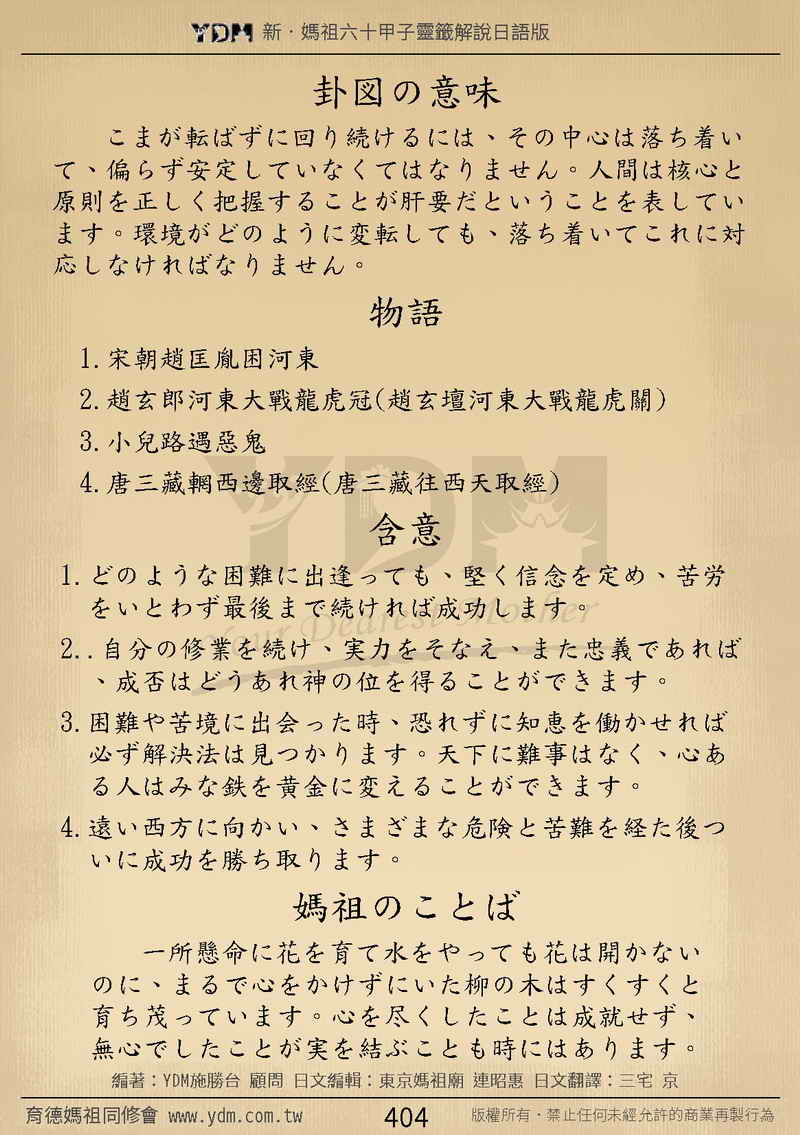 YDM 新‧媽祖六十甲子靈籤解說日語版
卦図の意味
こまが転ばずに回り続けるには、その中心は落ち着い
て、偏らず安定していなくてはなりません。人間は核心と
原則を正しく把握することが肝要だということを表してい
ます。環境がどのように変転しても、落ち着いてこれに対
応しなければなりません。
物語
1.宋朝趙匡胤困河東
2.趙玄郎河東大戰龍虎冠(趙玄壇河東大戰龍虎關)
3.小兒路遇惡鬼
4.唐三藏輞西邊取經(唐三藏往西天取經)
含意
1.どのような困難に出逢っても、堅く信念を定め、苦労
をいとわず最後まで続ければ成功します。
2..自分の修業を続け、実力をそなえ、また忠義であれば
、成否はどうあれ神の位を得ることができます。
3.困難や苦境に出会った時、恐れずに知恵を働かせれば
必ず解決法は見つかります。天下に難事はなく、心あ
る人はみな鉄を黄金に変えることができます。
4.遠い西方に向かい、さまざまな危険と苦難を経た後つ
いに成功を勝ち取ります。
媽祖のことば
一所懸命に花を育て水をやっても花は開かない
のに、まるで心をかけずにいた柳の木はすくすくと
育ち茂っています。心を尽くしたことは成就せず、
無心でしたことが実を結ぶことも時にはあります。
編著：YDM施勝台 顧問 日文編輯：東京媽祖廟 連昭惠 日文翻譯：三宅 京
育德媽祖同修會 www.ydm.com.tw
404
版權所有‧禁止任何未經允許的商業再製行為
YDM
Your Dearest Mother